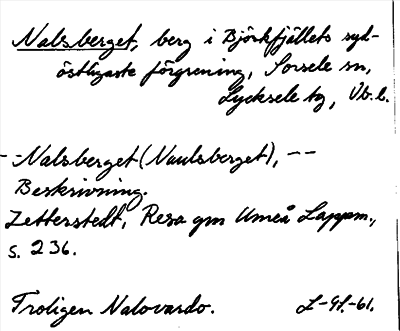 Nalsberget, berg i Björkfjällets syd-
östligaste förgrening, Sorsele sn,
Lycksele tg, Vb. l.
- -Nalsberget (Naulsberget), --
Beskrivning.
Zetterstedt, Resa gm Umeå Lappm.,
s. 236.
Troligen Nalovardo. L-gl.-61.